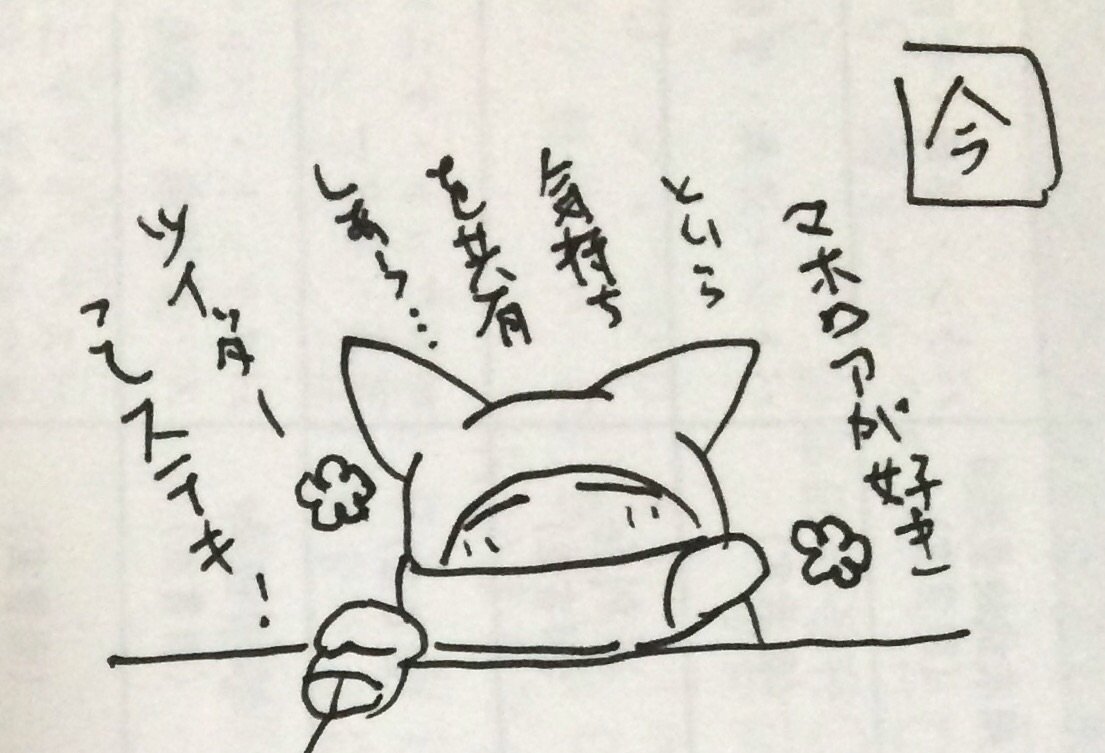 今
マホロアが好き
という
気持ち
を共有
しあう…
ツイッター
ってステキ!